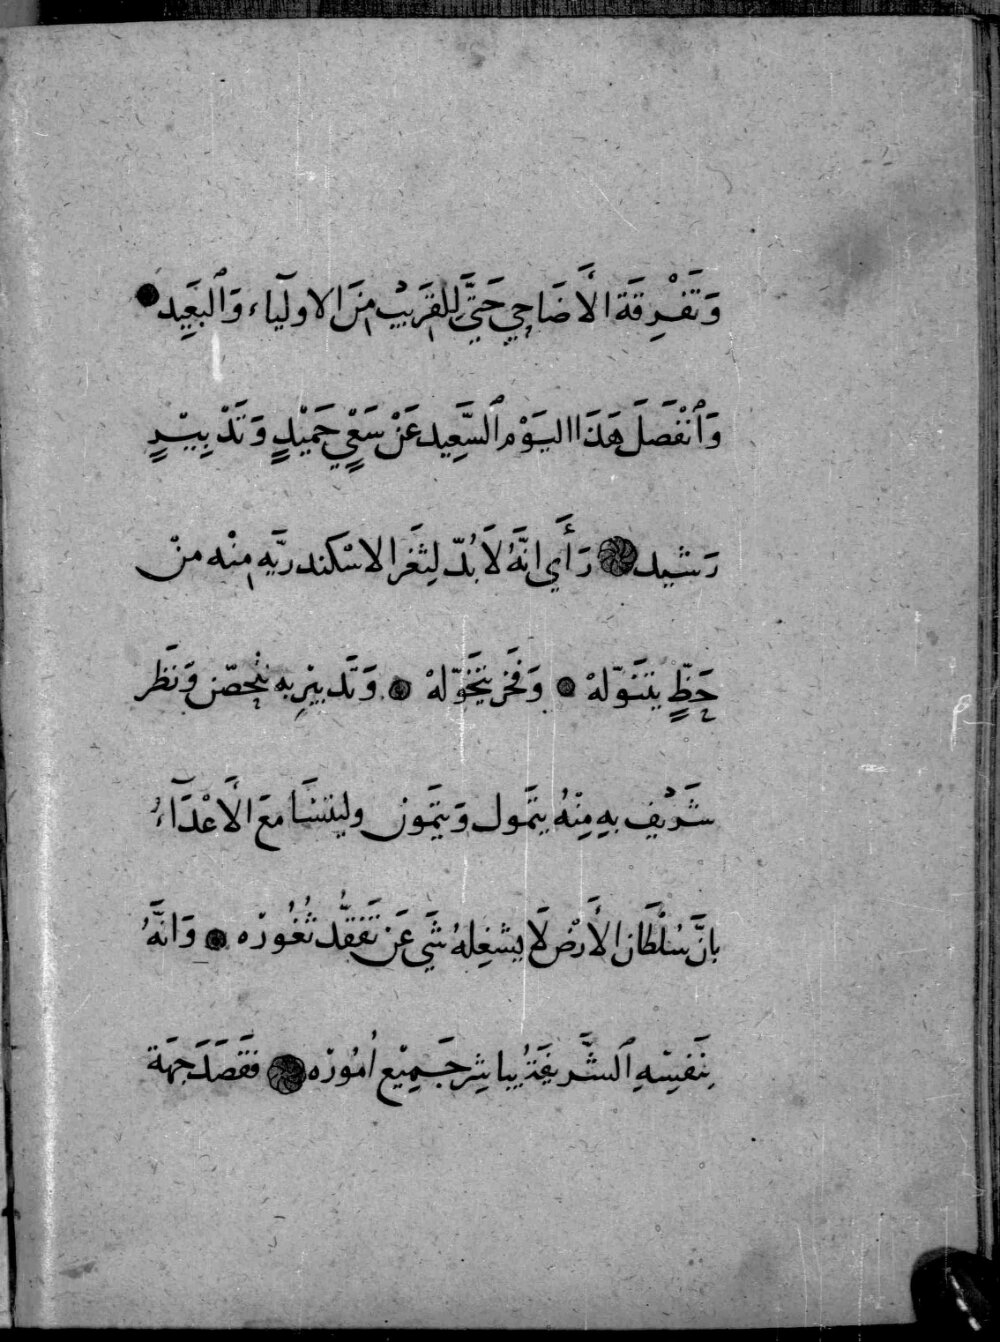 وَتَفْرِقَة الأَضَاحِي حَتَّى لِلقَرِيْب مِنَ الاوليآء وَٱلبَعِيد
وَٱنْفَصَلَ هَذَا اليَوْم ٱلسَّعِيد عَنْ سَعْيٍ جَمِيْلٍ وَتَدْبِيْرٍ
رَشيد رَأَي انَّهُ لَا بُدّ لِثَغر الاسْكندريَّه مِنْه منْ
حَظٍّ يتنَوّلهْ وَفَخر يَتَخَوّلهْ وَتَدبيْرِ به يتحصّن وَنَظَر
شَرِيْف بهِ مِنْهُ يتمَّول وَيتمَّون وليتسَامعَ الأَعْدَآءُ
بانَّ سُلْطَان الأَرْض لَا يشغِلهُ شَي عَن تَفَقُّد ثُغُورْه وَانَّهُ
بِنَفْسِهِ ٱلشَّريفَة يُباشِر جَمِيْع اُمُورْه فَقَصَدَ جهَة